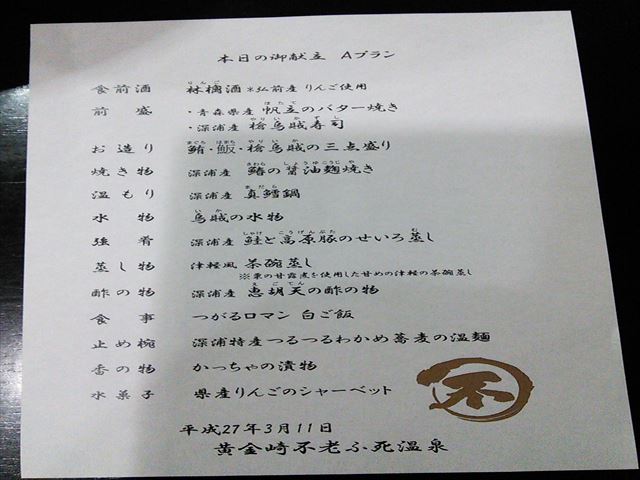 本日の御献立 Aプラン
食前酒 林檎酒 ※弘前産 りんご使用
前盛 ・青森県産 帆立のバター焼き
・深浦産 槍烏賊寿司
お造り 鮪・魬・槍烏賊の三点盛り
焼き物 深浦産 鰆の醤油麹焼き
温もり 深浦産 真鱈鍋
水物 烏賊の水物
強肴 深浦産 鮭と高原豚のせいろ蒸し
蒸し物 津軽風 茶碗蒸し
※栗の甘露煮を使用した甘めの津軽の茶碗蒸し
酢の物 深浦産 恵胡天の酢の物
食事 つがるロマン 白ご飯
止め椀 深浦特産つるつるわかめ蕎麦の温麺
香の物 かっちゃの漬物
水菓子 県産りんごのシャーベット
不
平成27年3月11日
黄金崎不老ふ死温泉